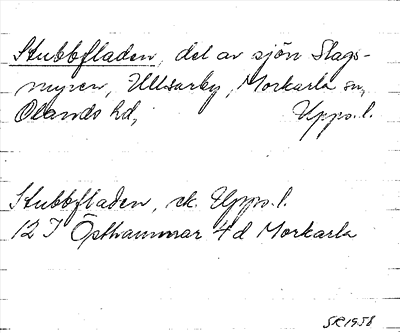 Stubbfladen, del av sjön Slags-
myren, Ullsarby, Morkarla sn,
Olands hd, Upps. l.
Stubbfladen, ek. Upps. l.
12 I Östhammar 4 d Morkarla
SR 1958